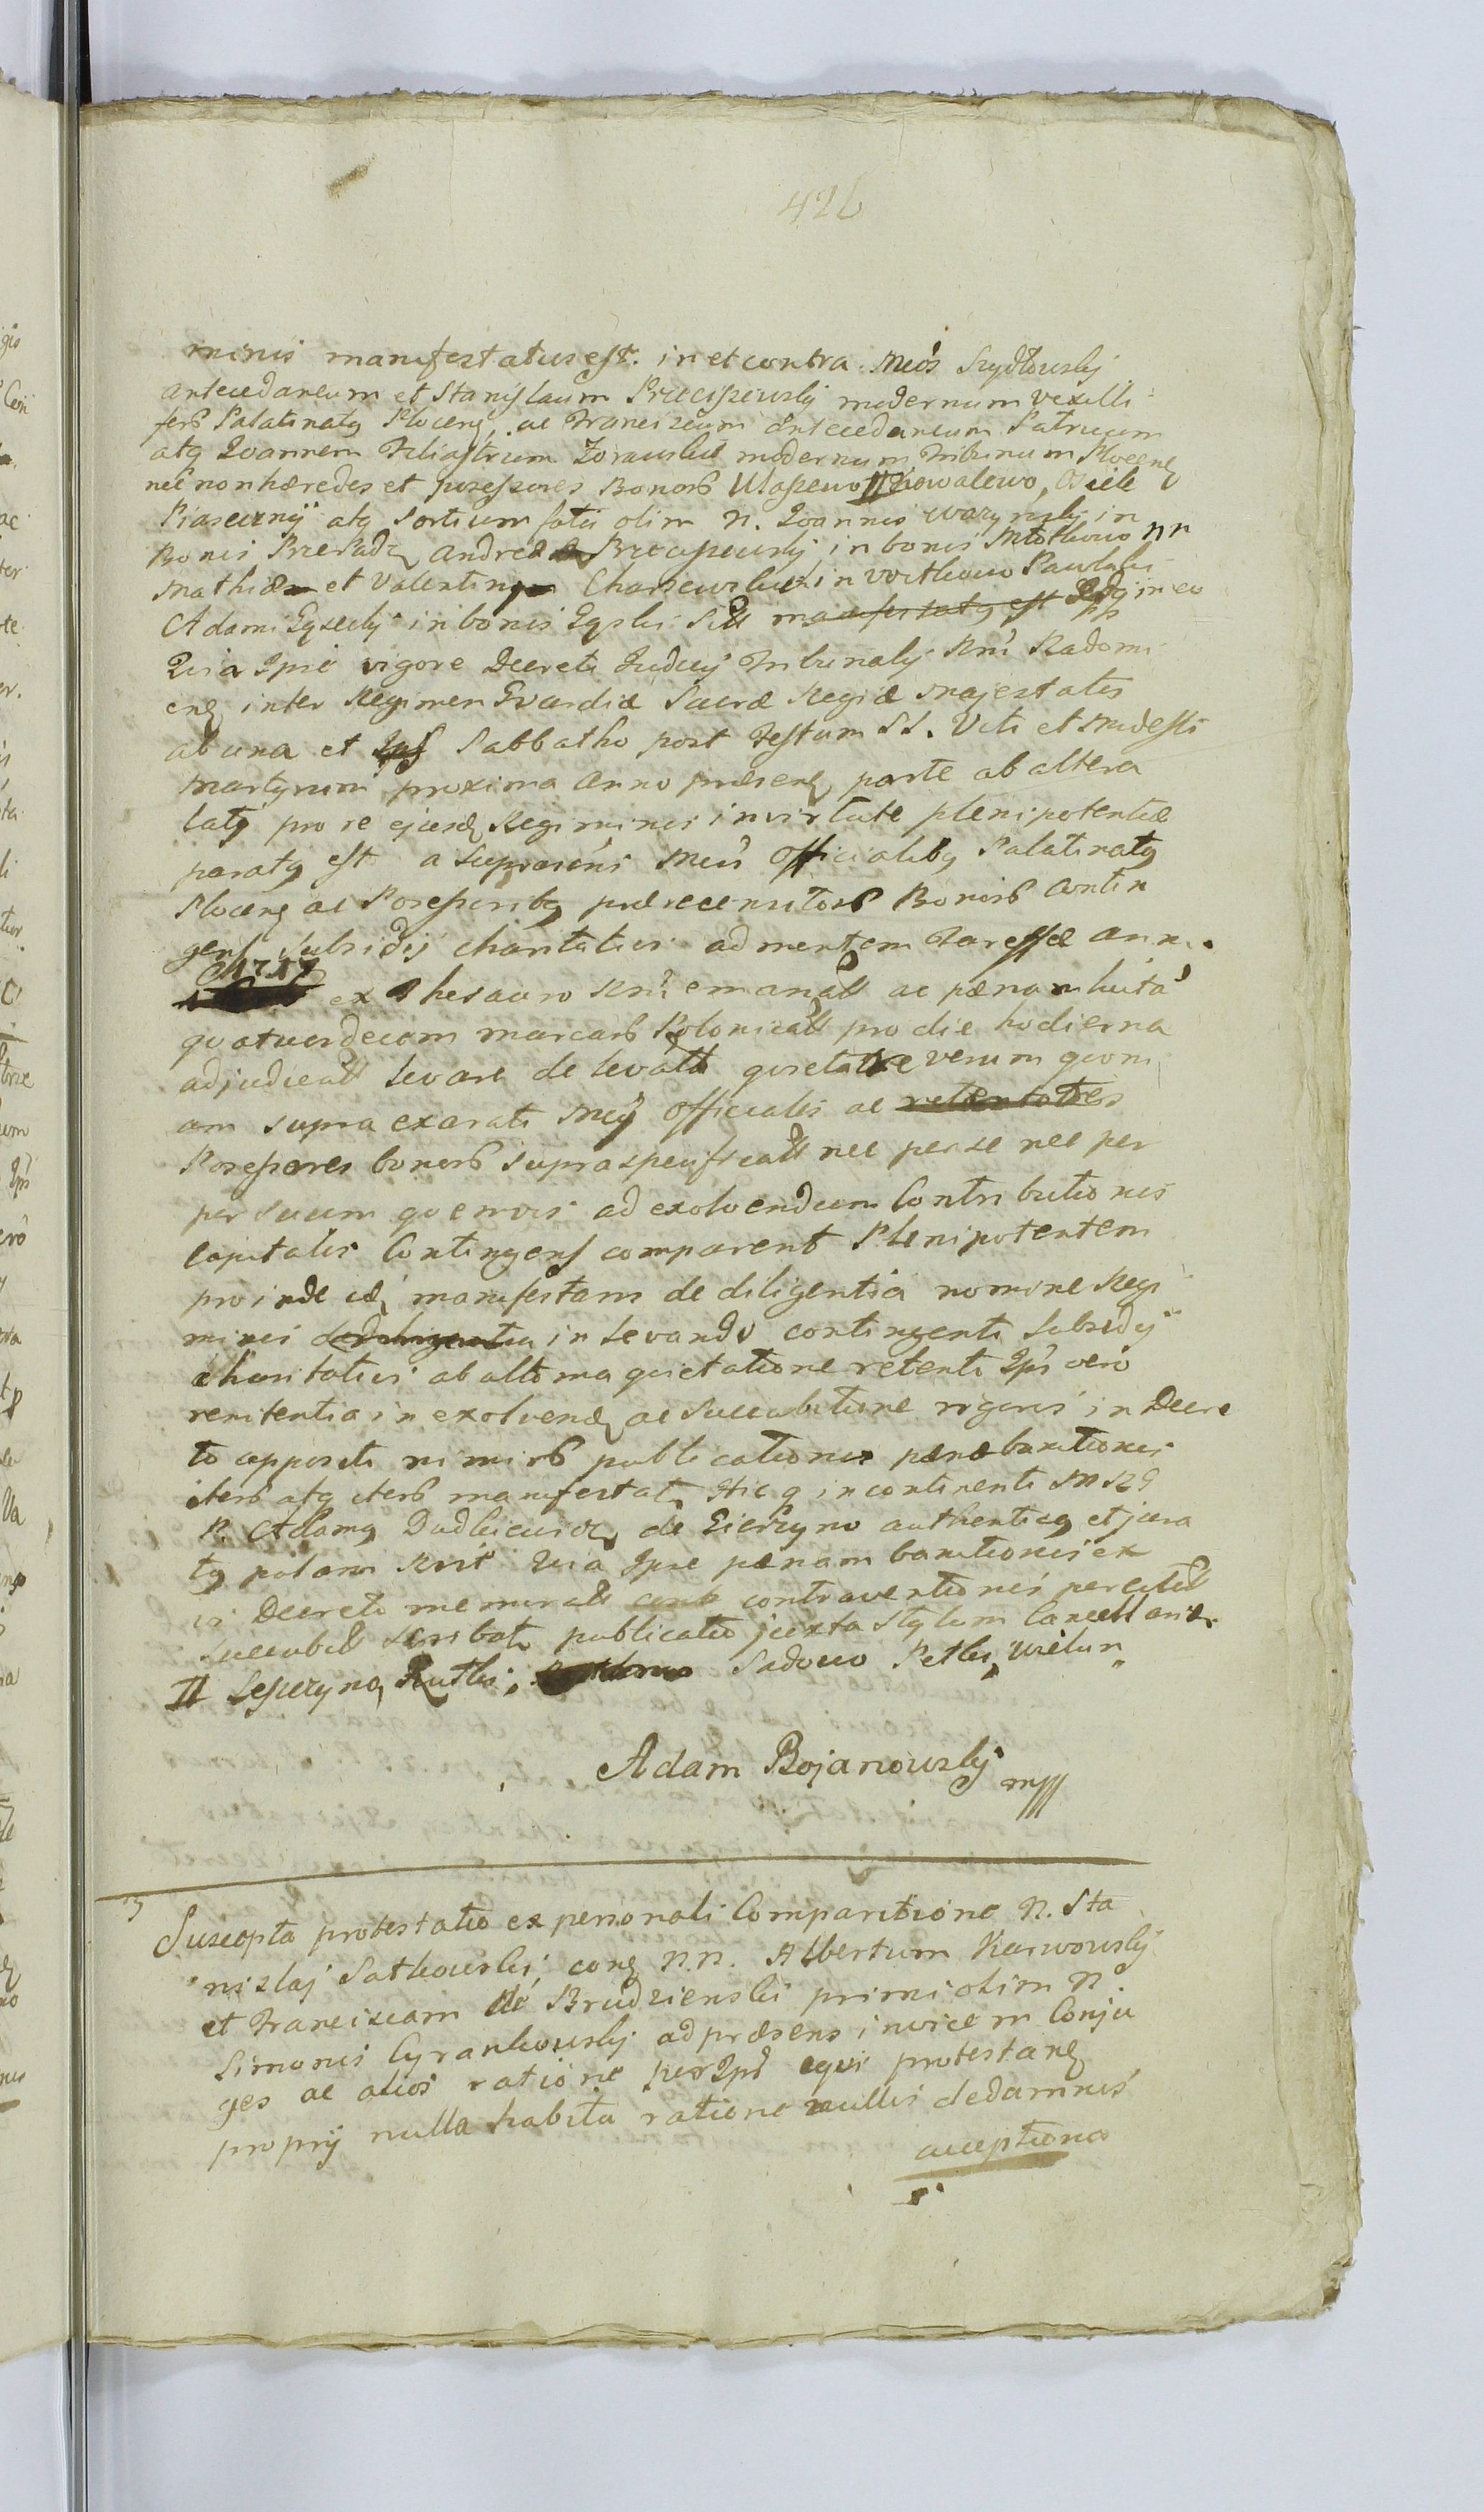 426
minis manifestatus est. in et contra Mcos Szydłowskj
antecedaneum et Stanislaum Przeciszewskj modernum vexilli
ferb Palatinatq Plocenq, ac Franciscum antecedaneum Patruum
atq Joannem Filiastrum Zorawskie modernum Tribunum Plocenq
nec non hæredes et possessores Bonorb Ułaszewo # Kowalewo, Wiele
Piasecznij atq Sortium fati olim N. Joannis Warynskj in
Bonis Przeradz Andreæ Przeciszewskj in bonis Młotkowo NN
Mathiæ et Valentinj Charzewskie in Woitkowo Pawlaki
Adami Zyzeckj in bonis Zyski Sitt manifestatq est Idq in eo
Quia Ipse vigore Decreti Judicij Tribunalij Rni Radomi
enq inter Regimen Gvardiæ Sacræ Regiæ Majestatis
ab una et Ips Sabbatho post Festum SS. Viti et Modesti
Martyrum proxima Anno præsenq parte ab altera
latj pro re ejusdq Regiminis in virtute plenipotentiæ
paratq est a supraścnis Mcis Officialibq Palatinatq
Plocenq ac Possessoribq præcensitorb Bonorb contin
gens subsidij charitativi ad mentem Tareffæ Anni
1717
ex Thesauro Rni emanatt ac pænam luitą
quatuordecem marcarb Polonicalt pro die hodierna
adjudicatt levare de levatt quietare verum quoni
am supra exarati Mcij Officiales ac retentores
Possessores bonorb supraspecificatt nec per se nec per
per suum quemvis ad exolvendum Contributionis
capitalis Contingens comparent Plenipotentem
proinde idq manifestans de diligentia nomine Regi
minis de diligentia in levando contingenti subsidij
charitativi ab altima quietatione retenti Ips vero
renitentia in exolvenq ac succubitione rigoris in Decre
to appositi nimirb publicationis pænæ banitionis
iterb atq iterb manifestatq Hicq incontinenti M 529
N. Adamq Dudkiewicz de Gierzyno authenticq et jura
tq palam Rvit Quia Ipse pænam banitionis ex
vi Decreti memoratt contraventionis percipitt
succubitt scribatq publicatio juxta Stylum Cancellariæ.
# Leszczynoq Rutki, Sadowo Petki, Wielun
Adam Bojanowskj mpp
3 Suscepta protestatio ex personali Comparitione N. Sta
nislaj Sutkowski, conq N.N. Albertum Karwowskj
et Franciscam de Brudzienski primi olim N.
Simonis Cyrankowskj ad præsens invicem Conju
ges ac alios ratione per Ips equi protestanq
proprij nulla habita ratione nullis de damnis
acceptione